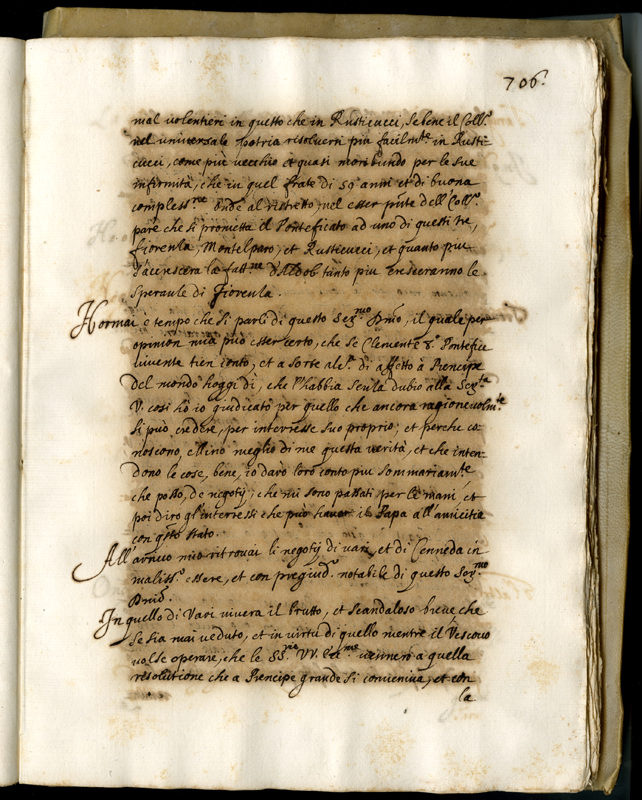 706.
mal volentieri in questo che in Rusticucci, se bene il Coll.º
nel universale potria risolversi piu facilm.te in Rusti-
cucci, come piu vecchio et quasi moribundo per le sue
infirmità, che in quel frate di 50 anni et di buona
compless.ne al ristretto, nel esser pñte dell'Coll.º
pare che si prometta il Ponteficato ad uno di questi tre,
fiorenza, Montelparo, et Rusticucci, et quanto piu
s'accrescera la fatt.ne d'Aldob. tanto piu cresceranno le
speranze di Fiorenza.
Hormai è tempo che si parli di questo Ser.mo Dñio, il quale per
opinion mia può esser certo, che se Clemente 8.º Pontefice
vivente tien conto, et a sorte alc.ª di affetto à Prencipe
del mondo hoggi dì, che l'habbia senza dubio alla Ser.tà
V. così hò io giudicato per quello che ancora ragionevolm.te
si può credere, per interesse suo proprio; et perche co-
noscono, ellino meglio di me questa verità, et che inten-
dono le cose, bene, io darò loro conto piu sommariam.te
che posso, de negotij, che mi sono passati per le mani, et
poi diro gl'interressi che può haver il Papa all'amicitia
con q.sto stato.
All'arrivo mio ritrovai li negotij di Vari, et di Ceneda in
maliss.º essere, et con pregiud.º notabile di questo Ser.mo
Dñio.
In quello di Vari vivera il brutto, et scandaloso breve che
se sia mai veduto, et in virtu di quello mentre il Vescovo
volse operare, che le SS.rie VV. Ecc.me vennero a quella
resolutione che a Prencipe grande si conveniva, et con
la